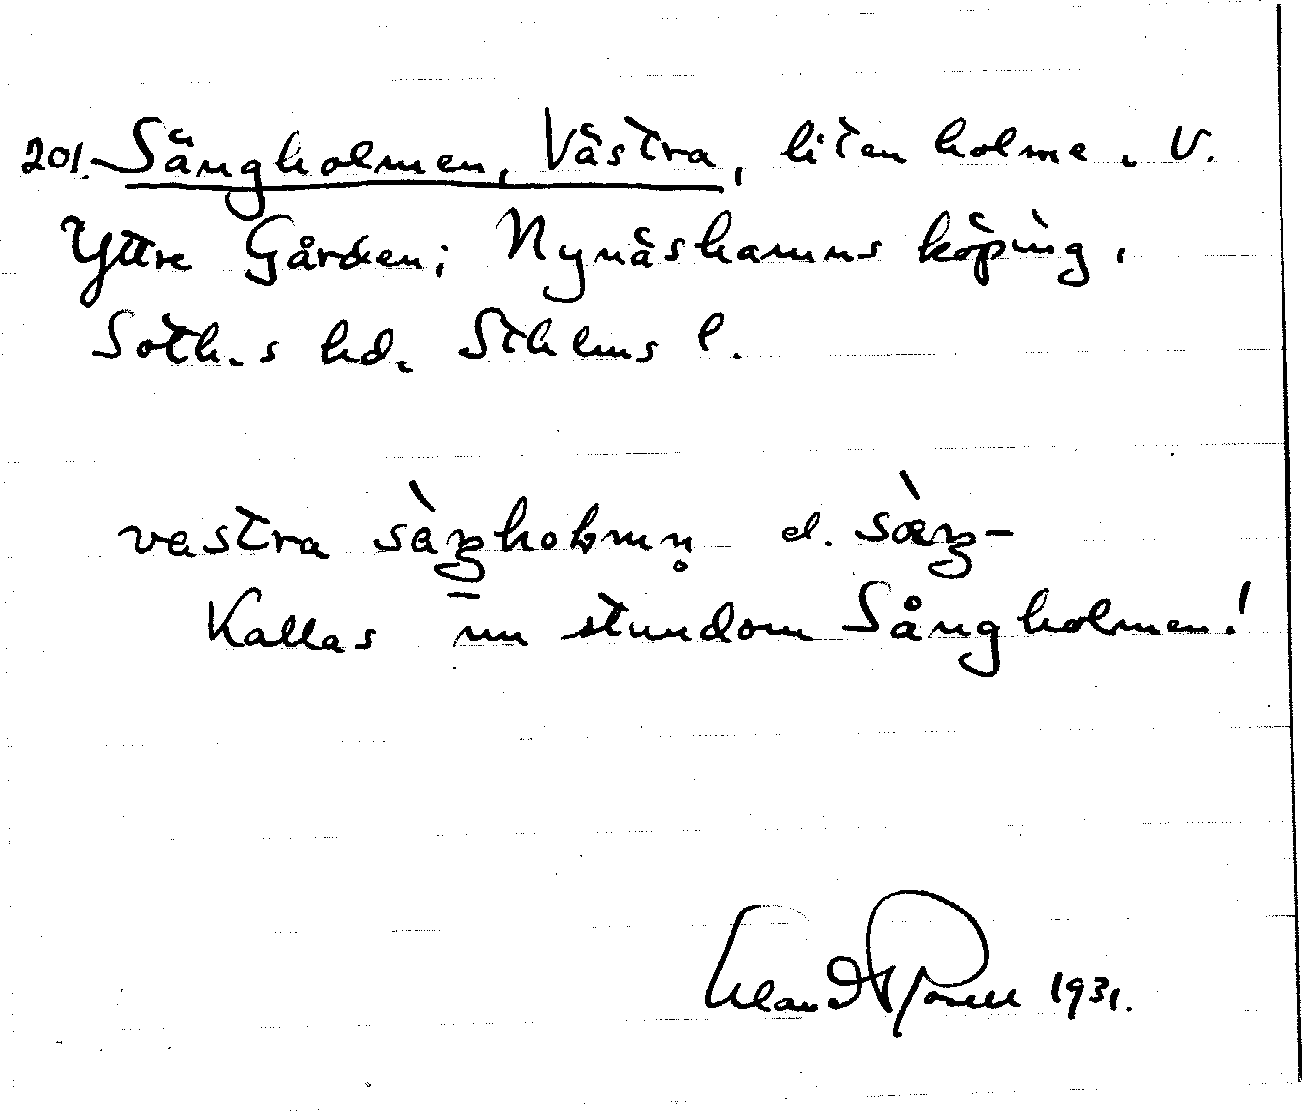 201. Sängholmen, Västra, liten holme. V.
Yttre Gården; Nynäshamns köping,
Soth-s hd. Sthlms l.
vestra sàŋhoḷmn̥ el. sæ̀ŋ-
Kallas nu stundom Sångholmen!
1931.